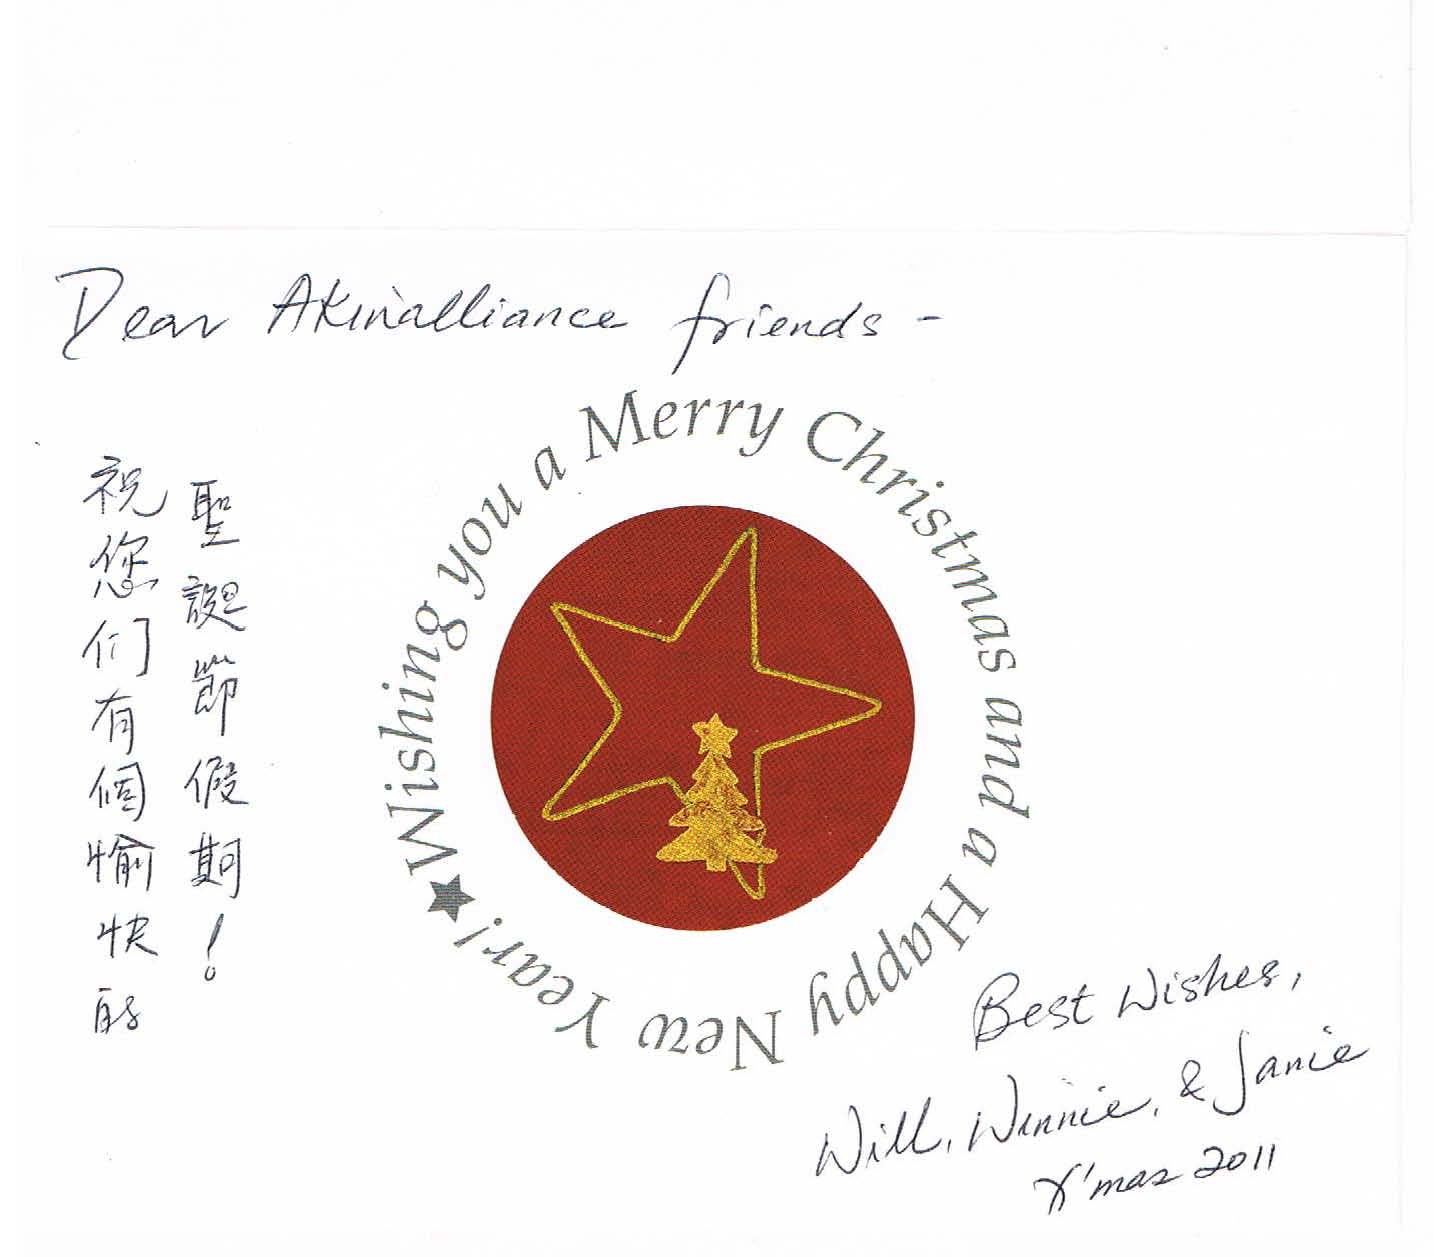 Dear Akinalliance friends -
Wishing you a Merry Christmas and a Happy New Year!
祝您们有個愉快的
聖誕節假期！
Best Wishes,
Will, Winnie, & Janie
X'mas 2011